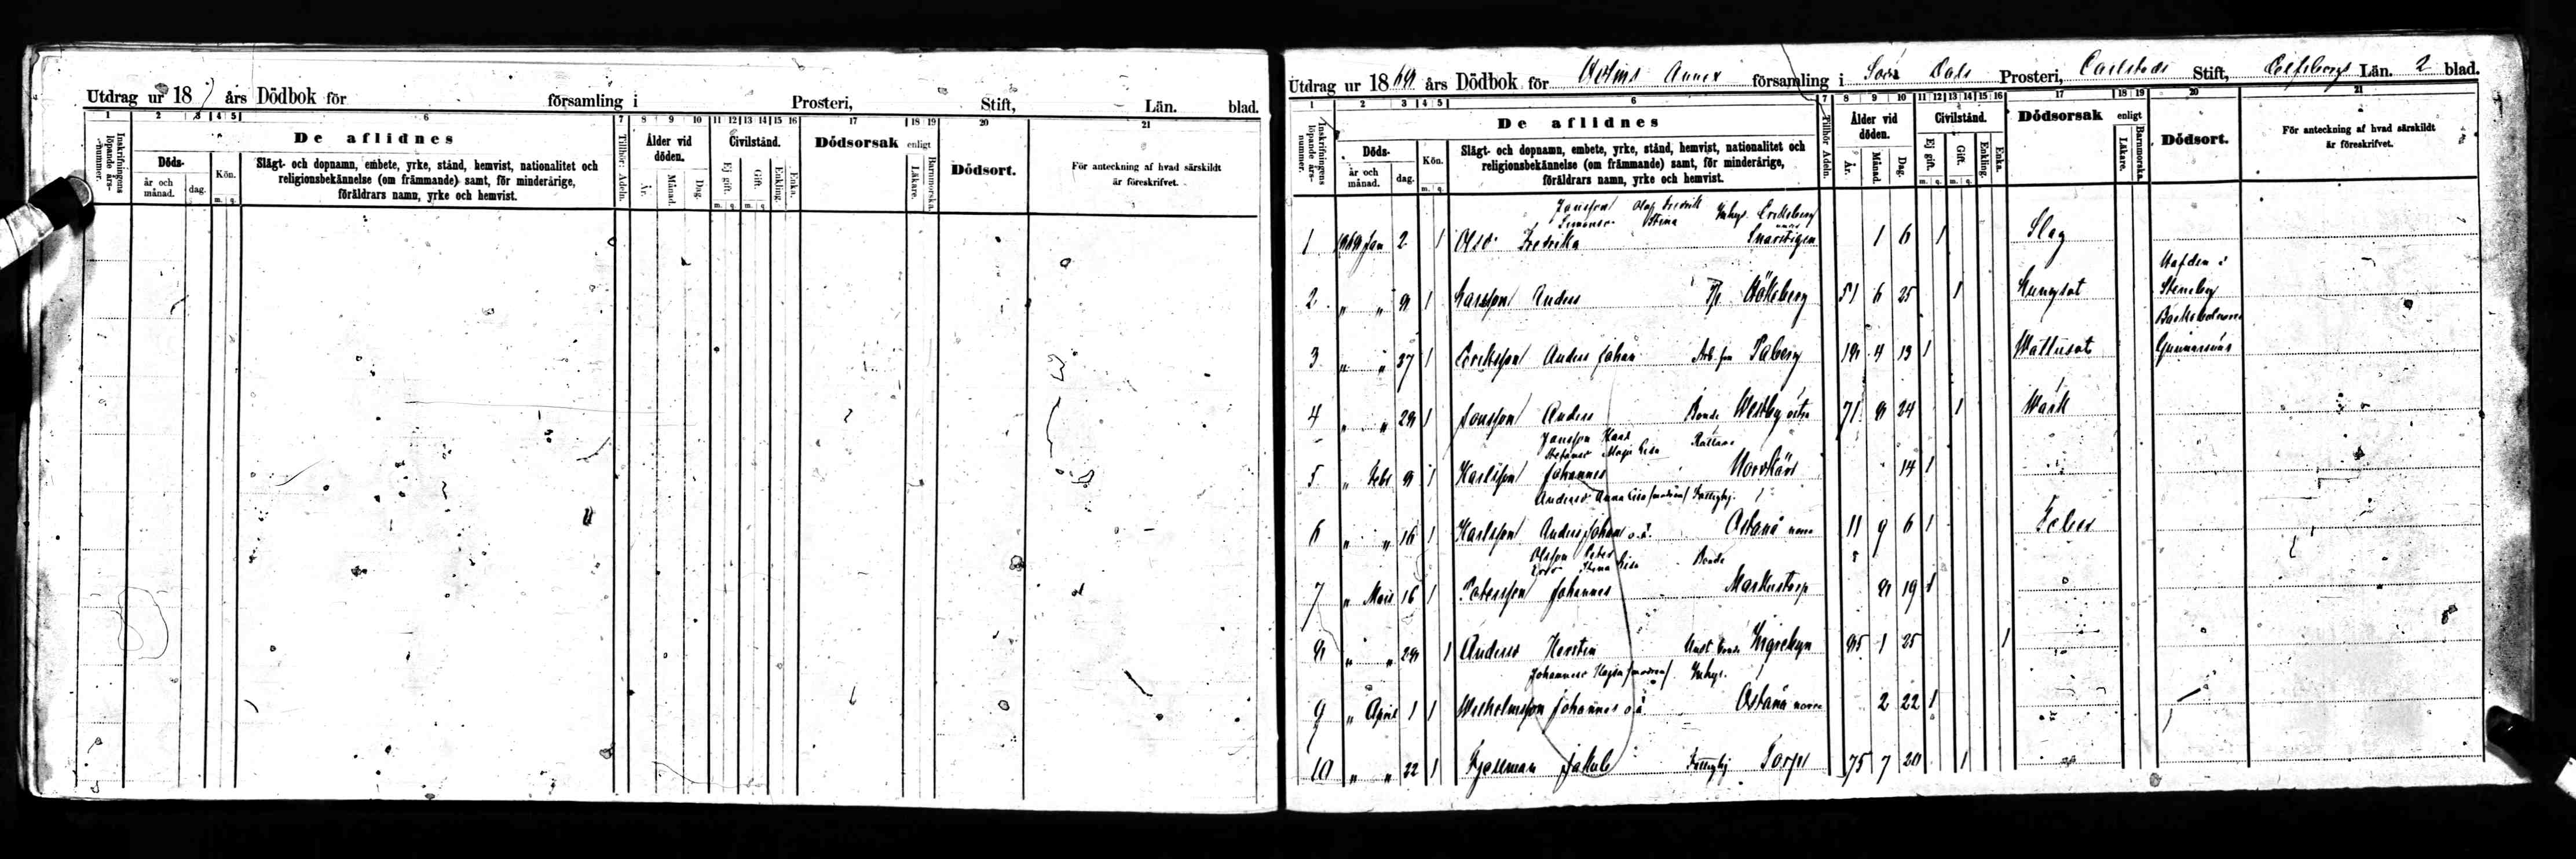 Utdrag ur 18 7 års Dödbok för församling i Prosteri, Stift, Län. blad.
1 2 3 4 5 6 7 8 9 10 11 12 13 14 15 16 17 18 19 20 21
Inskrifningens löpande års-nummer.
De aflidnes
Döds-
år och månad.
dag.
Kön.
m. q.
Slägt- och dopnamn, embete, yrke, stånd, hemvist, nationalitet och
religionsbekännelse (om främmande) samt, för minderårige,
föräldrars namn, yrke och hemvist.
Tillhör: Adeln.
Ålder vid döden.
År. Månad. Dag.
Civilstånd.
Ej gift. Gift. Enkling. Enka.
m. q. m. q.
Dödsorsak enligt
Läkare. Barnmorska.
Dödsort.
För anteckning af hvad särskildt
är föreskrifvet.
Utdrag ur 1869 års Dödbok för Annex församling i Södra Dals Prosteri, Carlstads Stift, Elfsborgs Län. 2 blad.
1 2 3 4 5 6 7 8 9 10 11 12 13 14 15 16 17 18 19 20 21
Inskrifningens löpande års-nummer.
De aflidnes
Döds-
år och månad.
dag.
Kön.
m. q.
Slägt- och dopnamn, embete, yrke, stånd, hemvist, nationalitet och
religionsbekännelse (om främmande) samt, för minderårige,
föräldrars namn, yrke och hemvist.
Tillhör: Adeln.
Ålder vid döden.
År. Månad. Dag.
Civilstånd.
Ej gift. Gift. Enkling. Enka.
m. q. m. q.
Dödsorsak enligt
Läkare. Barnmorska.
Dödsort.
För anteckning af hvad särskildt
är föreskrifvet.
Jansson Olof Fredrik Inhys.
Stina
1 1869 Jan 2 1 Olsd. Fredrika Snarstigen 1 6 1 Slag
2 " " 8 1 Larsson Anders Hökeberg 51 6 25 1 Lungsot Steneby
3 " " 27 1 Ericksson Anders Johan Taberg 18 4 13 1 Wattusot Gunnarsnäs
4 " " 28 1 Jonsson Anders Bonde Westby östra 71 8 24 1 Wärk
Jansson Karl
Maja Lisa
5 " Febr 8 1 Karlsson Johannes 14 1
Andersd Anna Lisa (modren) Fattighj.
6 " " 16 1 Karlsson Anders Johan o.ä. Östanå norra 11 9 6 1 Feber
Olsson Peter Bonde
Stina Lisa
7 " Mars 16 1 Petersson Johannes Markustorp 8 19 1
8 " " 28 1 Andersd Kerstin 85 1 25 1
Johannesd Kajsa (modren) Inhys.
9 " April 1 1 Wilhelmsson Johannes o.ä. Östanå norra 2 22 1
10 " " 22 1 Fjellman Jakob Fattighj Torp 75 7 20 1